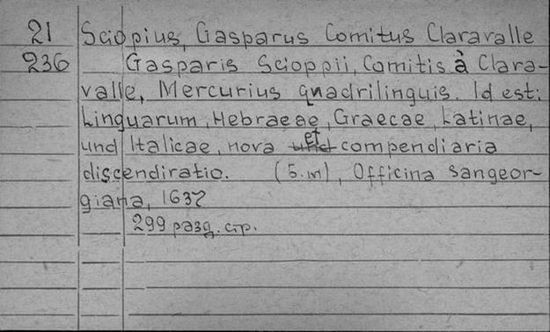 21 Sciopius, Gasparus Comitus Claravalle
236 Gasparis Scioppii, Comitis à Clara-
valle, Mercurius quadrilinguis. Id est:
Linguarum, Hebraeae, Graecae, Latinae,
und Italicae, nova et compendiaria
discendiratio. (S.m), Officina Sangeor-
giana, 1637
299 разд. стр.